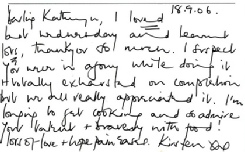 18.9.06.
Darling Kathryn, I loved
last wednesday and learnt
lots, thankyou so much. I suspect
you were in agony while doing it
+ totally exhausted on completion
but we all really appreciated it. I'm
longing to get cooking and admire
your talent + bravery with food!
lots of love + hope pain eases. Kirsten xxx